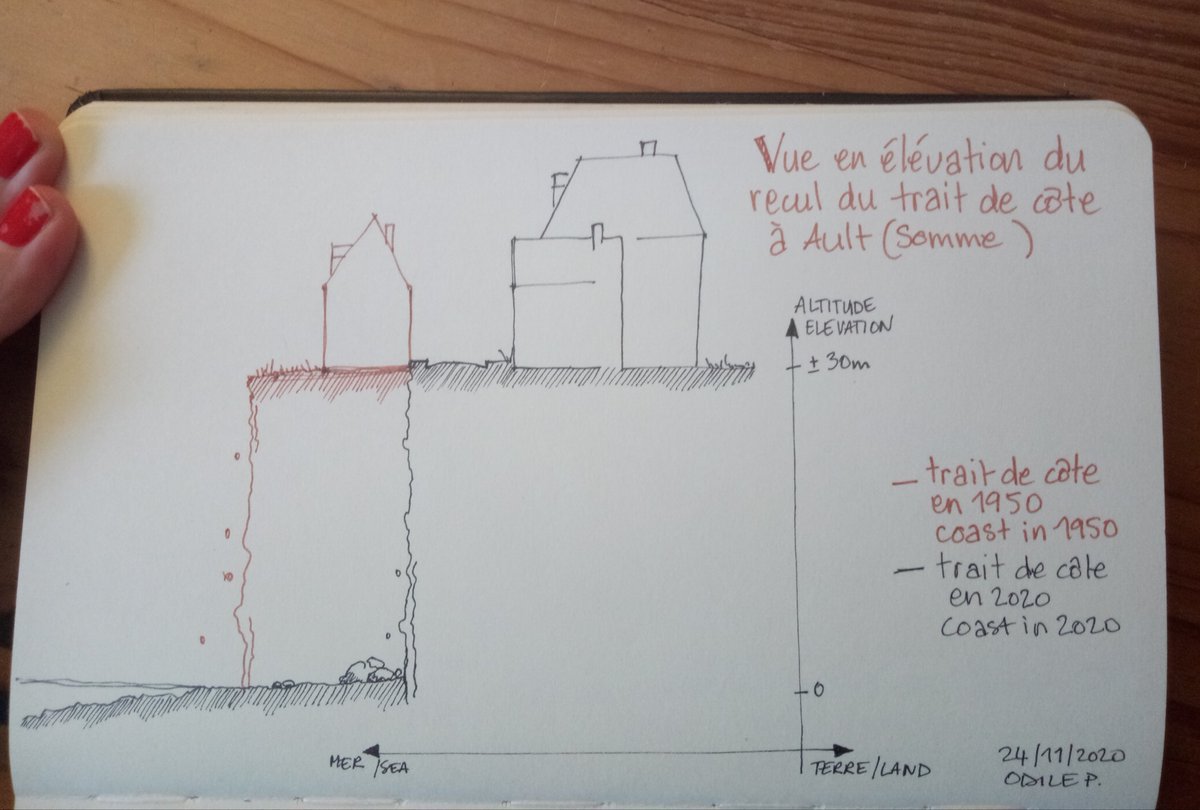 Vue en élévation du
recul du trait de côte
à Ault (Somme )
ALTITUDE
ELEVATION
± 30m
— trait de côte
en 1950
coast in 1950
— trait de côte
en 2020
coast in 2020
0
MER/SEA
TERRE/LAND
24/11/2020
ODILE P.